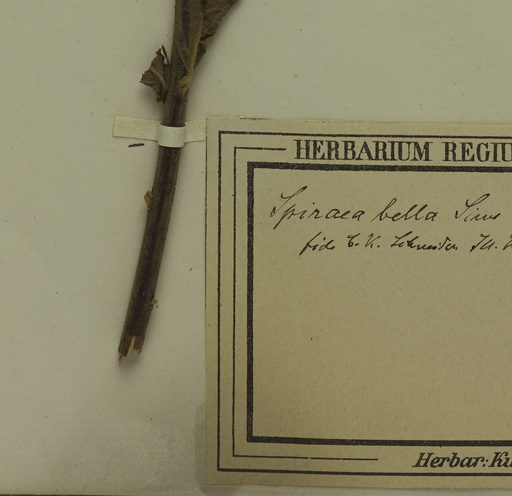 HERBARIUM REGIU
Spiraea bella Sims
fide C. K. Schneider Ill.
Herbar: Ku